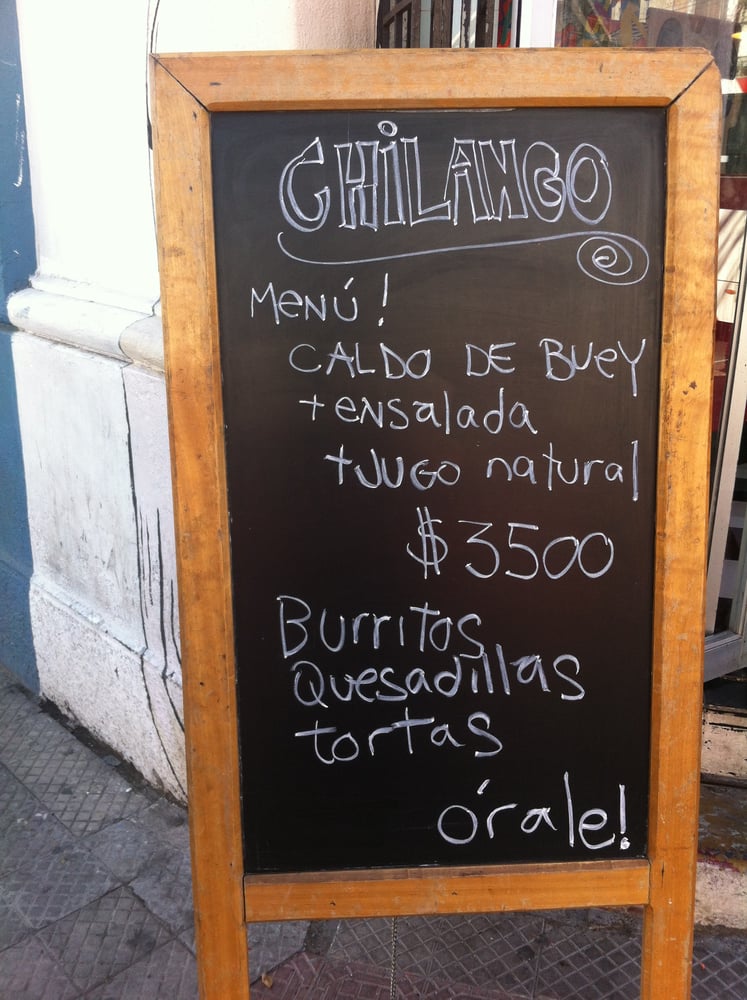 CHiLANGO
Menú!
CALDO DE BUEY
+ ensalada
+ JUGO natural
$3500
Burritos
Quesadillas
tortas
órale!